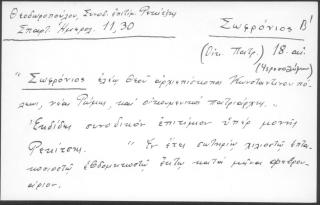 Θεοδωροπούλου, Συνοδ. ἐπιτίμ. Ρεκίτσης
Σπαρτ. Ἡμερολ. 11, 30
Σωφρόνιος Β'
(Οἰκ. Πατρ.) 18 αἰ.
(Ἱεροσολύμων)
"Σωφρόνιος ἐλέῳ Θεοῦ ἀρχιεπίσκοπος Κωνσταντινουπό
λεως, νέας Ρώμης, καὶ οἰκουμενικὸς πατριάρχης."
Ἐκδίδει συνοδικὸν ἐπιτίμιον ὑπὲρ μονῆς
Ρεκίτσης. "Ἐν ἔτει σωτηρίῳ χιλιοστῷ ἑπτα
κοσιοστῷ ἑβδομηκοστῷ ὀκτὼ κατὰ μῆνα φεβρου
άριον.